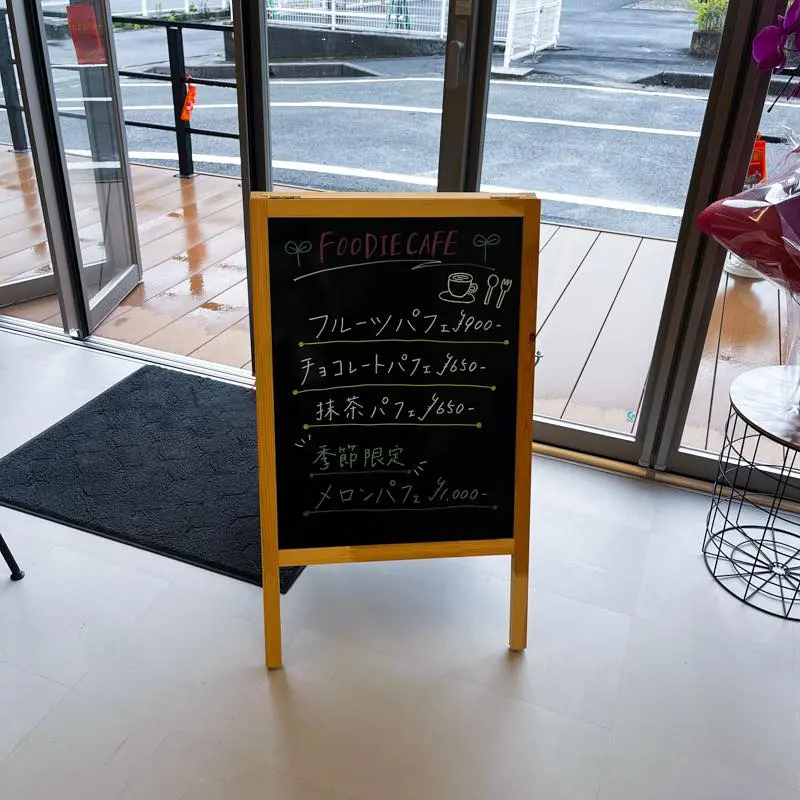 FOODIE CAFE
フルーツパフェ ¥900-
チョコレートパフェ ¥650-
抹茶パフェ ¥650-
季節限定
メロンパフェ ¥1,000-